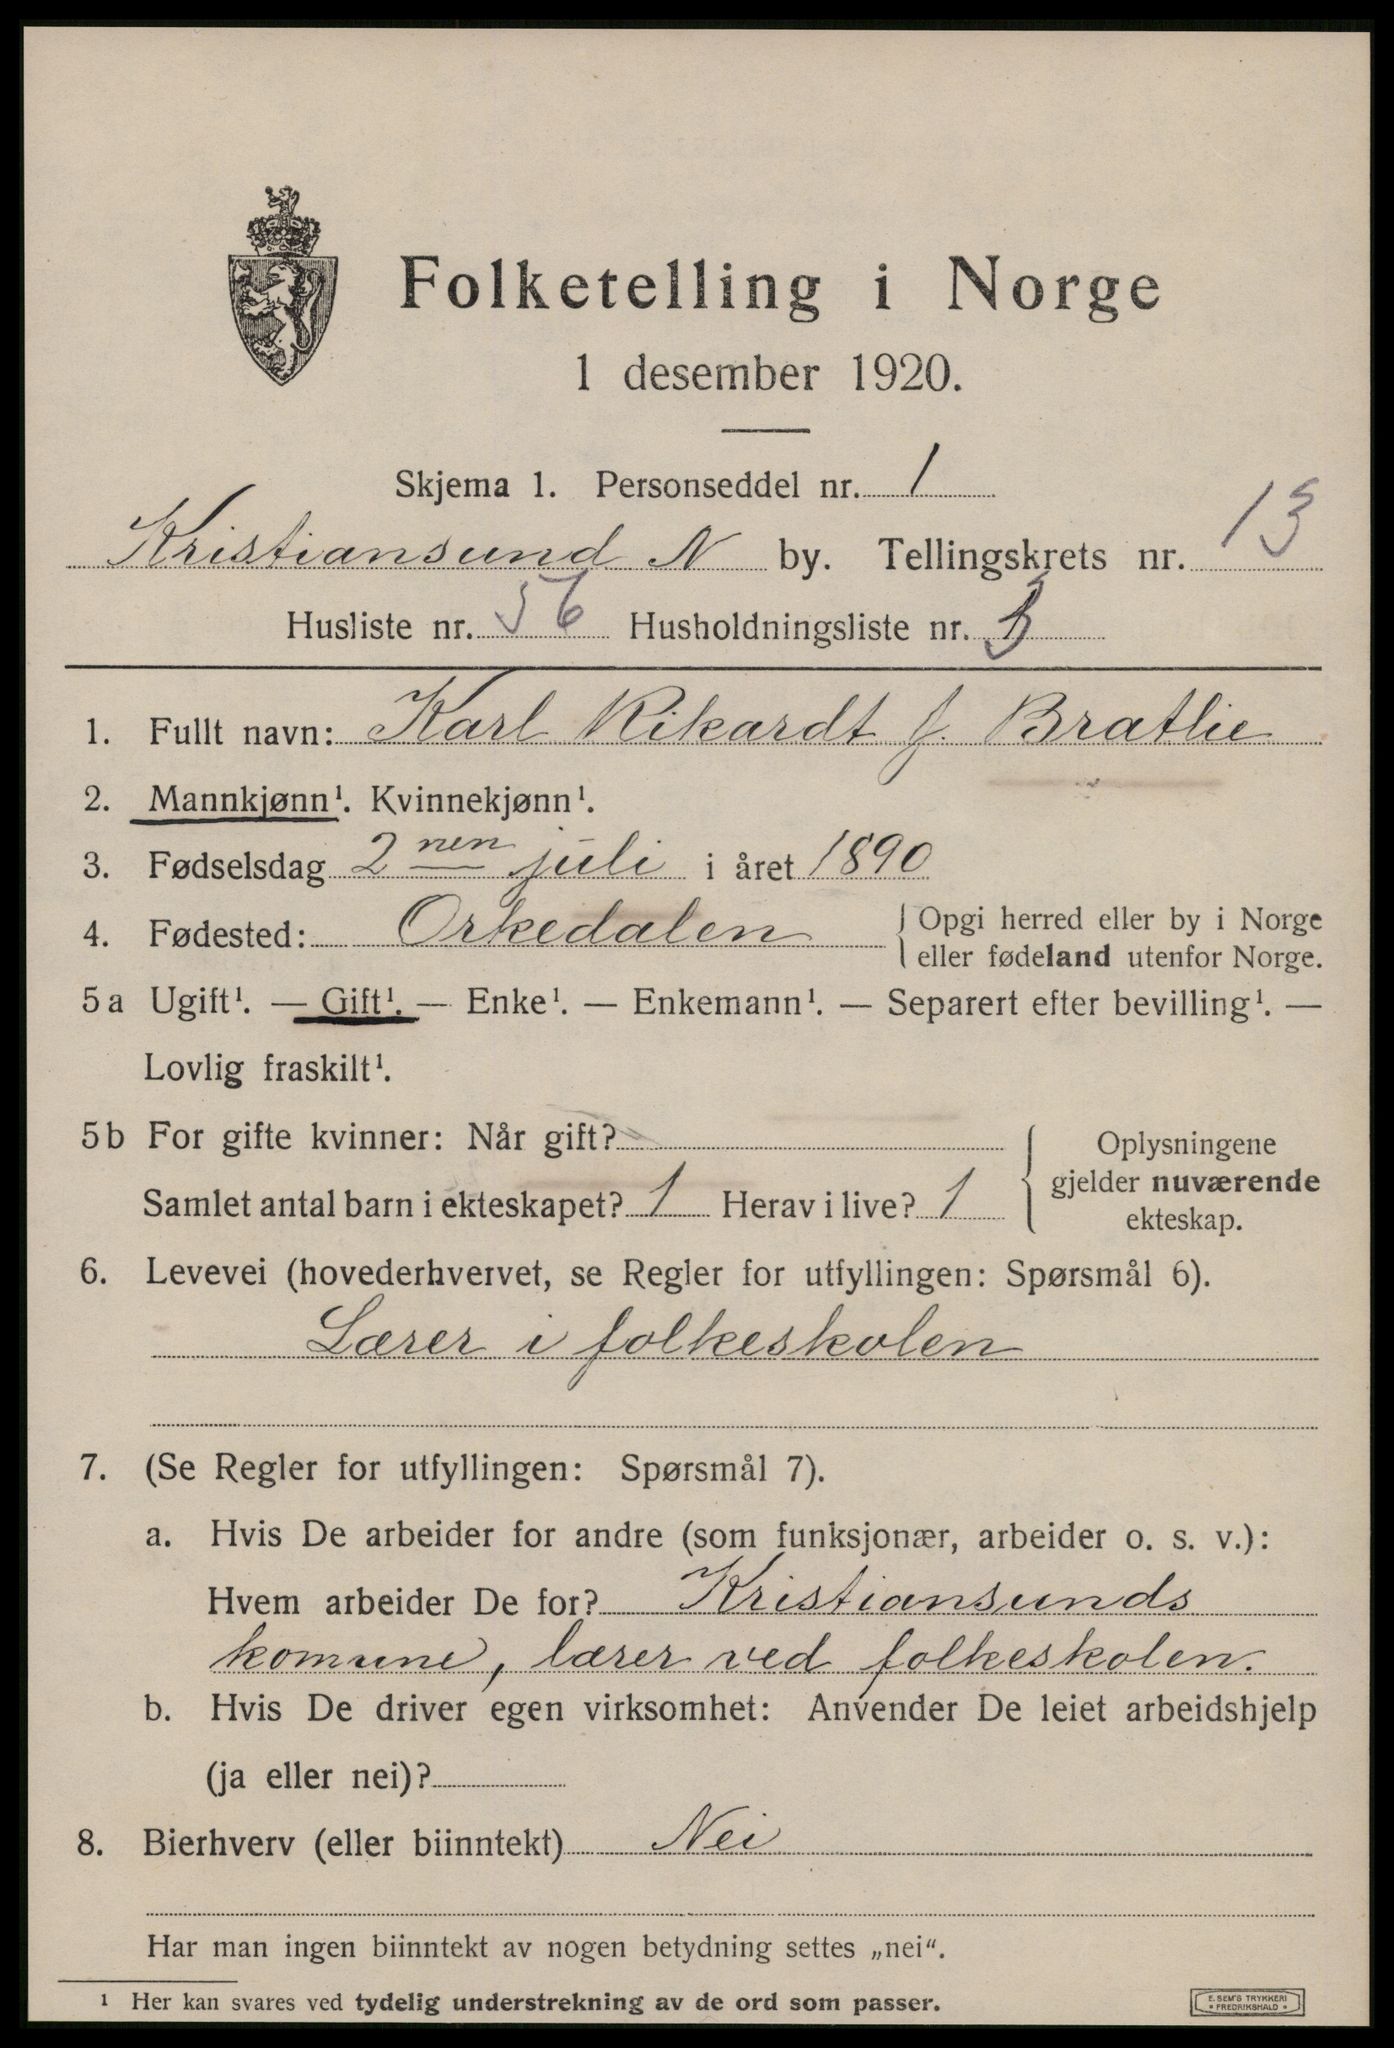 Folketelling i Norge
1 desember 1920.
Skjema 1. Personseddel nr. 1
Kristiansund N by. Tellingskrets nr. 13
Husliste nr. 56 Husholdningsliste nr. 3
1. Fullt navn: Karl Rikardt J. Bratlie
2. Mannkjønn¹. Kvinnekjønn¹.
3. Fødselsdag 2 nen juli i året 1890
4. Fødested: Orkedalen { Opgi herred eller by i Norge
eller fødeland utenfor Norge.
5a Ugift¹. — Gift¹. — Enke¹. — Enkemann¹. — Separert efter bevilling¹. —
Lovlig fraskilt¹.
5b For gifte kvinner: Når gift?
Samlet antal barn i ekteskapet? 1 Herav i live? 1
{ Oplysningene
gjelder nuværende
ekteskap.
6. Levevei (hovederhvervet, se Regler for utfyllingen: Spørsmål 6).
Lærer i folkeskolen
7. (Se Regler for utfyllingen: Spørsmål 7).
a. Hvis De arbeider for andre (som funksjonær, arbeider o. s. v.):
Hvem arbeider De for? Kristiansunds
komune, lærer ved folkeskolen.
b. Hvis De driver egen virksomhet: Anvender De leiet arbeidshjelp
(ja eller nei)?
8. Bierhverv (eller biinntekt) Nei
Har man ingen biinntekt av nogen betydning settes „nei“.
¹ Her kan svares ved tydelig understrekning av de ord som passer.
E. SEM'S TRYKKERI
• FREDRIKSHALD •